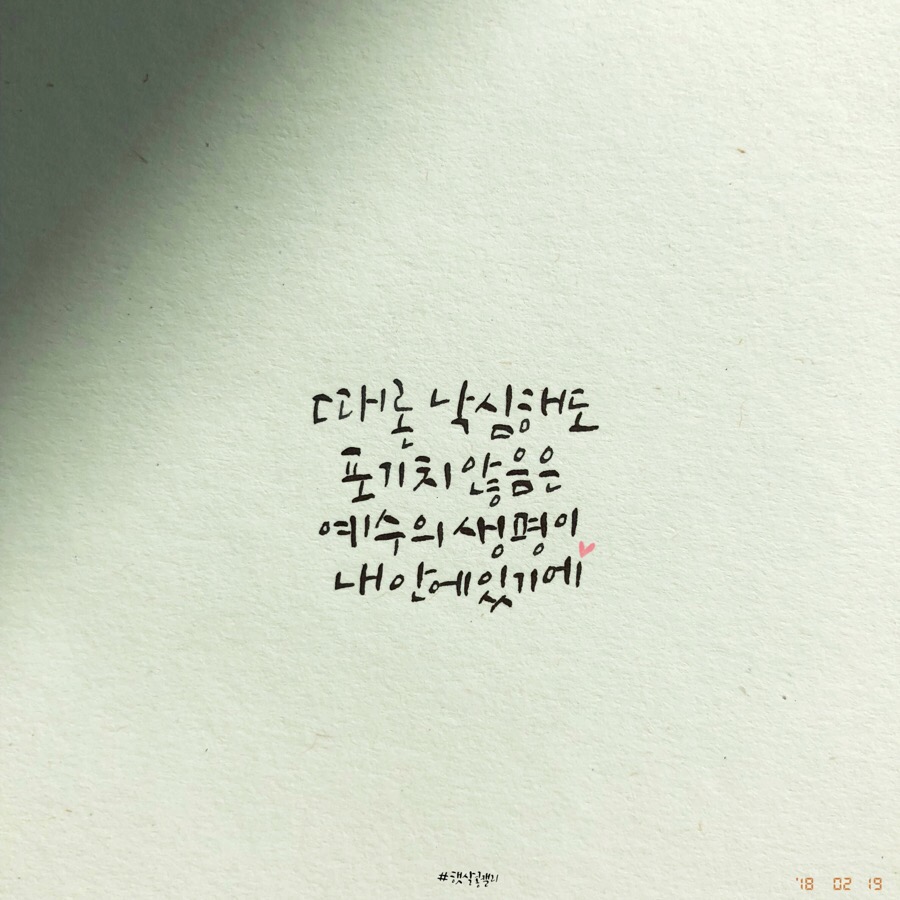 때론 낙심해도
포기치 않음은
예수의 생명이
내 안에 있기에
#햇살콩캘리
'18 02 19